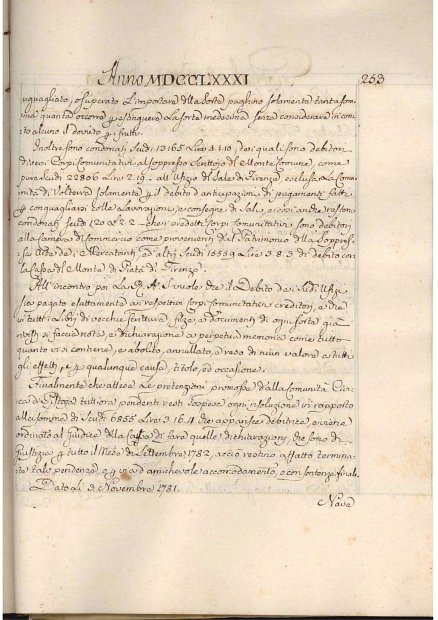 Anno MDCCLXXXI
253
uguagliato, o superato l'importare della sorte paghino solamente tanta som
ma quanta occorra p estinguere la sorte medesima senza considerare in con
to alcuno il dovuto p i frutti.
Inoltre sono condonati Scudi 13165 Lire 4:10, dei quali sono debitori
diversi Corpi Comunitativi al soppresso del Monte Comune, come
pure Scudi 22806 Lire 2.19 all'Ufizio del Sale di Firenze esclusa la Comu
nità di Volterra solamente p il debito d'anticipazioni di pagamenti fatti
p conguagliarsi nelle lavorazioni, e consegne di Sali, e così anche restono
condonati Scudi 120 2.2 che i predetti Corpi Comunitativi sono debitori
alla Camera di Commercio come provenienti dal Patrimonio della Soppres
sa Arte dei Mercatanti, ed altri Scudi 15559 Lire 3.8.3 di debito con
la Cassa del Monte di Pietà di Firenze.
All'incontro poi la R. A. S. vuole che il Debito dei Sudi Ufizi
sia pagato esattamente ai respettivi Corpi Comunitativi creditori, e che
di tutti i Libri di vecchia scrittura filze, e documenti di ogni sorta già
si faccia nota, e dichiarazione a perpetua memoria come tutto
quanto vi si contiene, è abolito, annullato, e reso di niun valore a tutti
gli effetti, e p qualunque causa, titolo, ed occasione.
Finalmente che attese le pretenzioni promosse dalla Comunità Civi
ca di Pistoia tuttora pendenti resti sospesa ogni risoluzione in rapporto
alla somma di Scudi 6855 Lire 3.16.4 che apparisce debitrice, e viene
ordinato al Giudice della Causa di fare quelle dichiarazioni, che sono di
Giustizia p tutto il Mese di Settembre 1782, acciò restino affatto termina
te tali pendenze, o p via d'amichevole accomodamento, o con sentenza finale.
Dato gli 3 Novembre 1781.
Nave